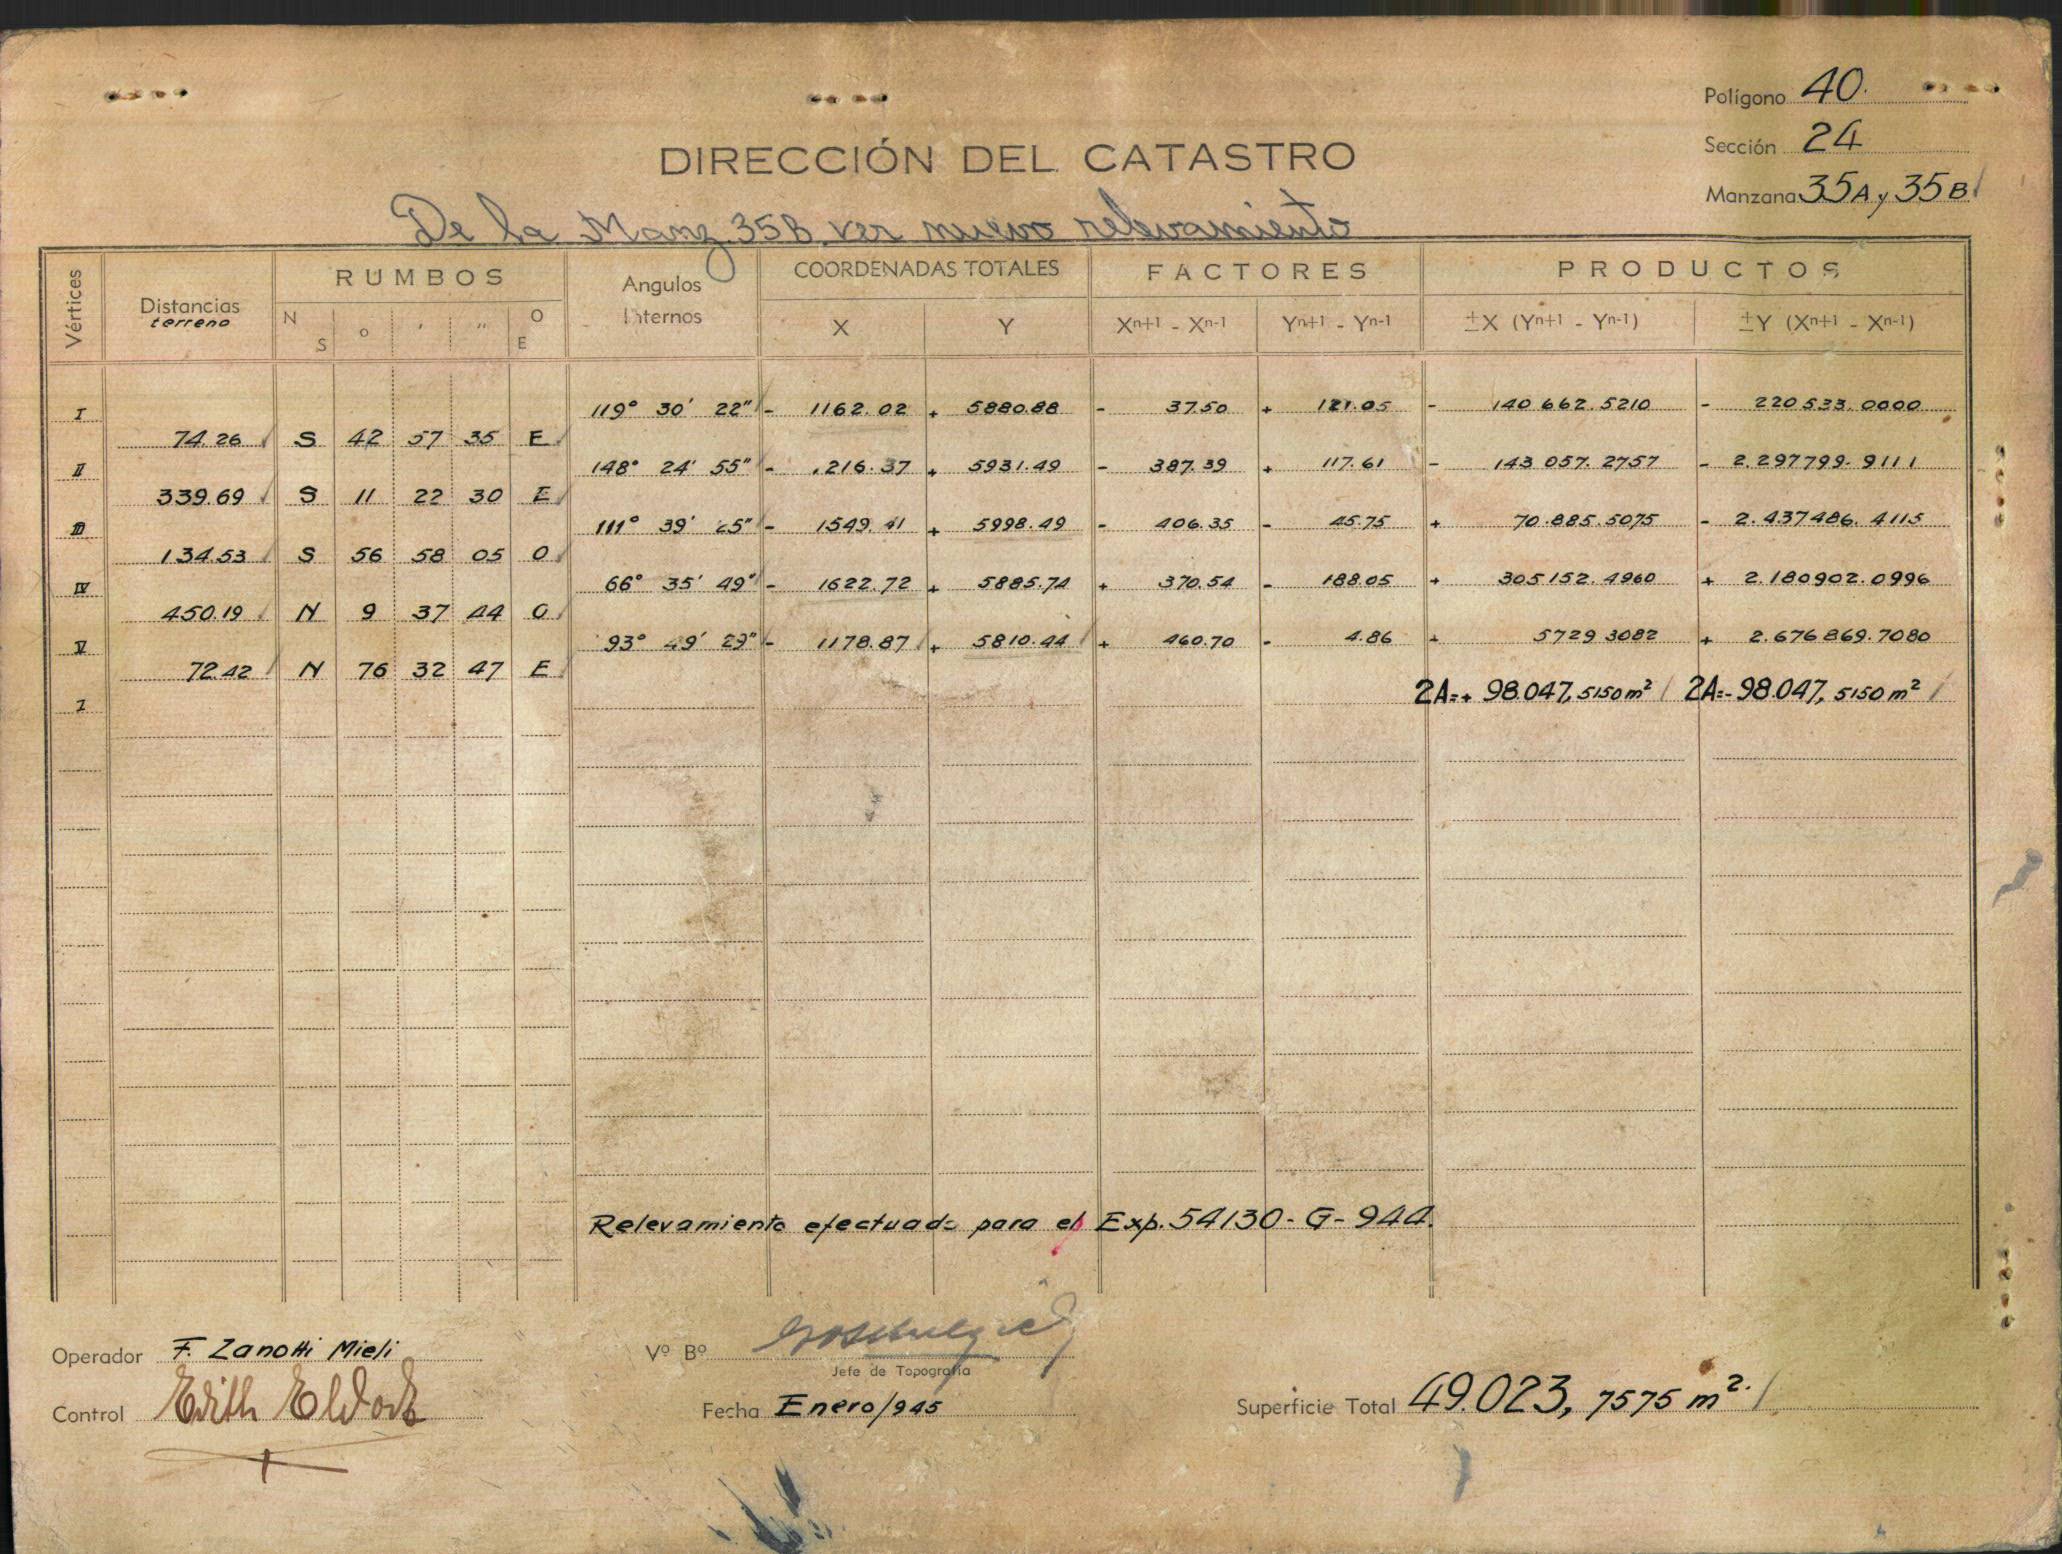 Polígono 40.
Sección 24
Manzana 35A y 35B
DIRECCIÓN DEL CATASTRO
De la Manz 35B ver nuevo relevamiento
Vértices Distancias terreno RUMBOS Angulos Internos COORDENADAS TOTALES FACTORES PRODUCTOS
N S o ' " O E X Y Xn+1 - Xn-1 Yn+1 - Yn-1 ±X (Yn+1 - Yn-1) ±Y (Xn+1 - Xn-1)
I 119° 30' 22" - 1162.02 + 5880.88 - 37.50 + 121.05 - 140 662.5210 - 220 533.0000
74.26 S 42 57 35 E
II 148° 24' 55" - 1216.37 + 5931.49 - 387.39 + 117.61 - 143 057.2757 - 2.297799.9111
339.69 S 11 22 30 E
III 111° 39' 25" - 1549.41 + 5998.49 - 406.35 - 45.75 + 70.885.5075 - 2.437486.4115
134.53 S 56 58 05 O
IV 66° 35' 49" - 1622.72 + 5885.74 + 370.54 - 188.05 + 305 152.4960 + 2.180902.0996
450.19 N 9 37 44 O
V 93° 49' 29" - 1178.87 + 5810.44 + 460.70 - 4.86 + 5729 3082 + 2.676 869.7080
72.42 N 76 32 47 E
I 2A=+ 98.047,5150 m² 2A=- 98.047,5150 m²
Relevamiento efectuado para el Exp. 54130-G-944.
Operador F. Zanotti Mieli
Vº Bº
Jefe de Topografía
Control Edith
Fecha Enero/945
Superficie Total 49.023,7575 m².